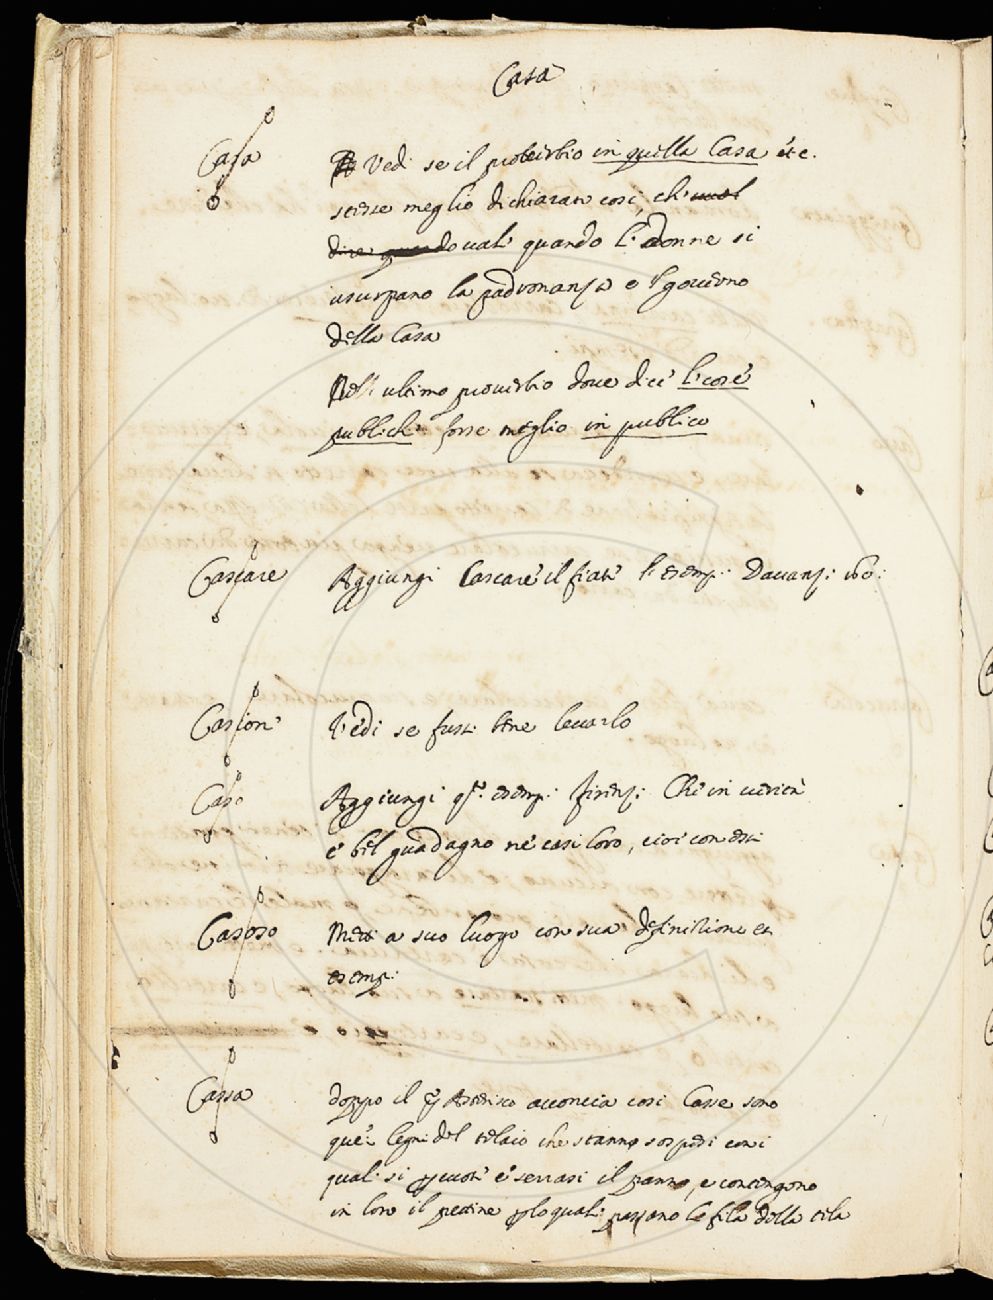 Casa
Casa
Vedi se il proverbio in quella Casa etc.
stesse meglio dichiarato così, che vuol
dire quando vale quando le donne si
usurpano la padronanza e 'l governo
della Casa
Nell' ultimo proverbio dove dice le cose
publiche forse meglio in publico
Cascare
Aggiungi Cascare il fiato l'esemp: Davanz:
Casione
Vedi se fusse bene levarlo
Caso
Aggiungi esemp: Firenz: Che in verità
è bel guadagno ne' casi loro, cioè con
Casoso
Metti a suo luogo con sua definitione et
esemp:
Cassa
doppo il asterisco acconcia così Casse sono
que' legni del telaio che stanno sospesi con i
quali si percuote e serrasi il panno, e contengono
in loro il pettine per lo quale passano le fila della tela